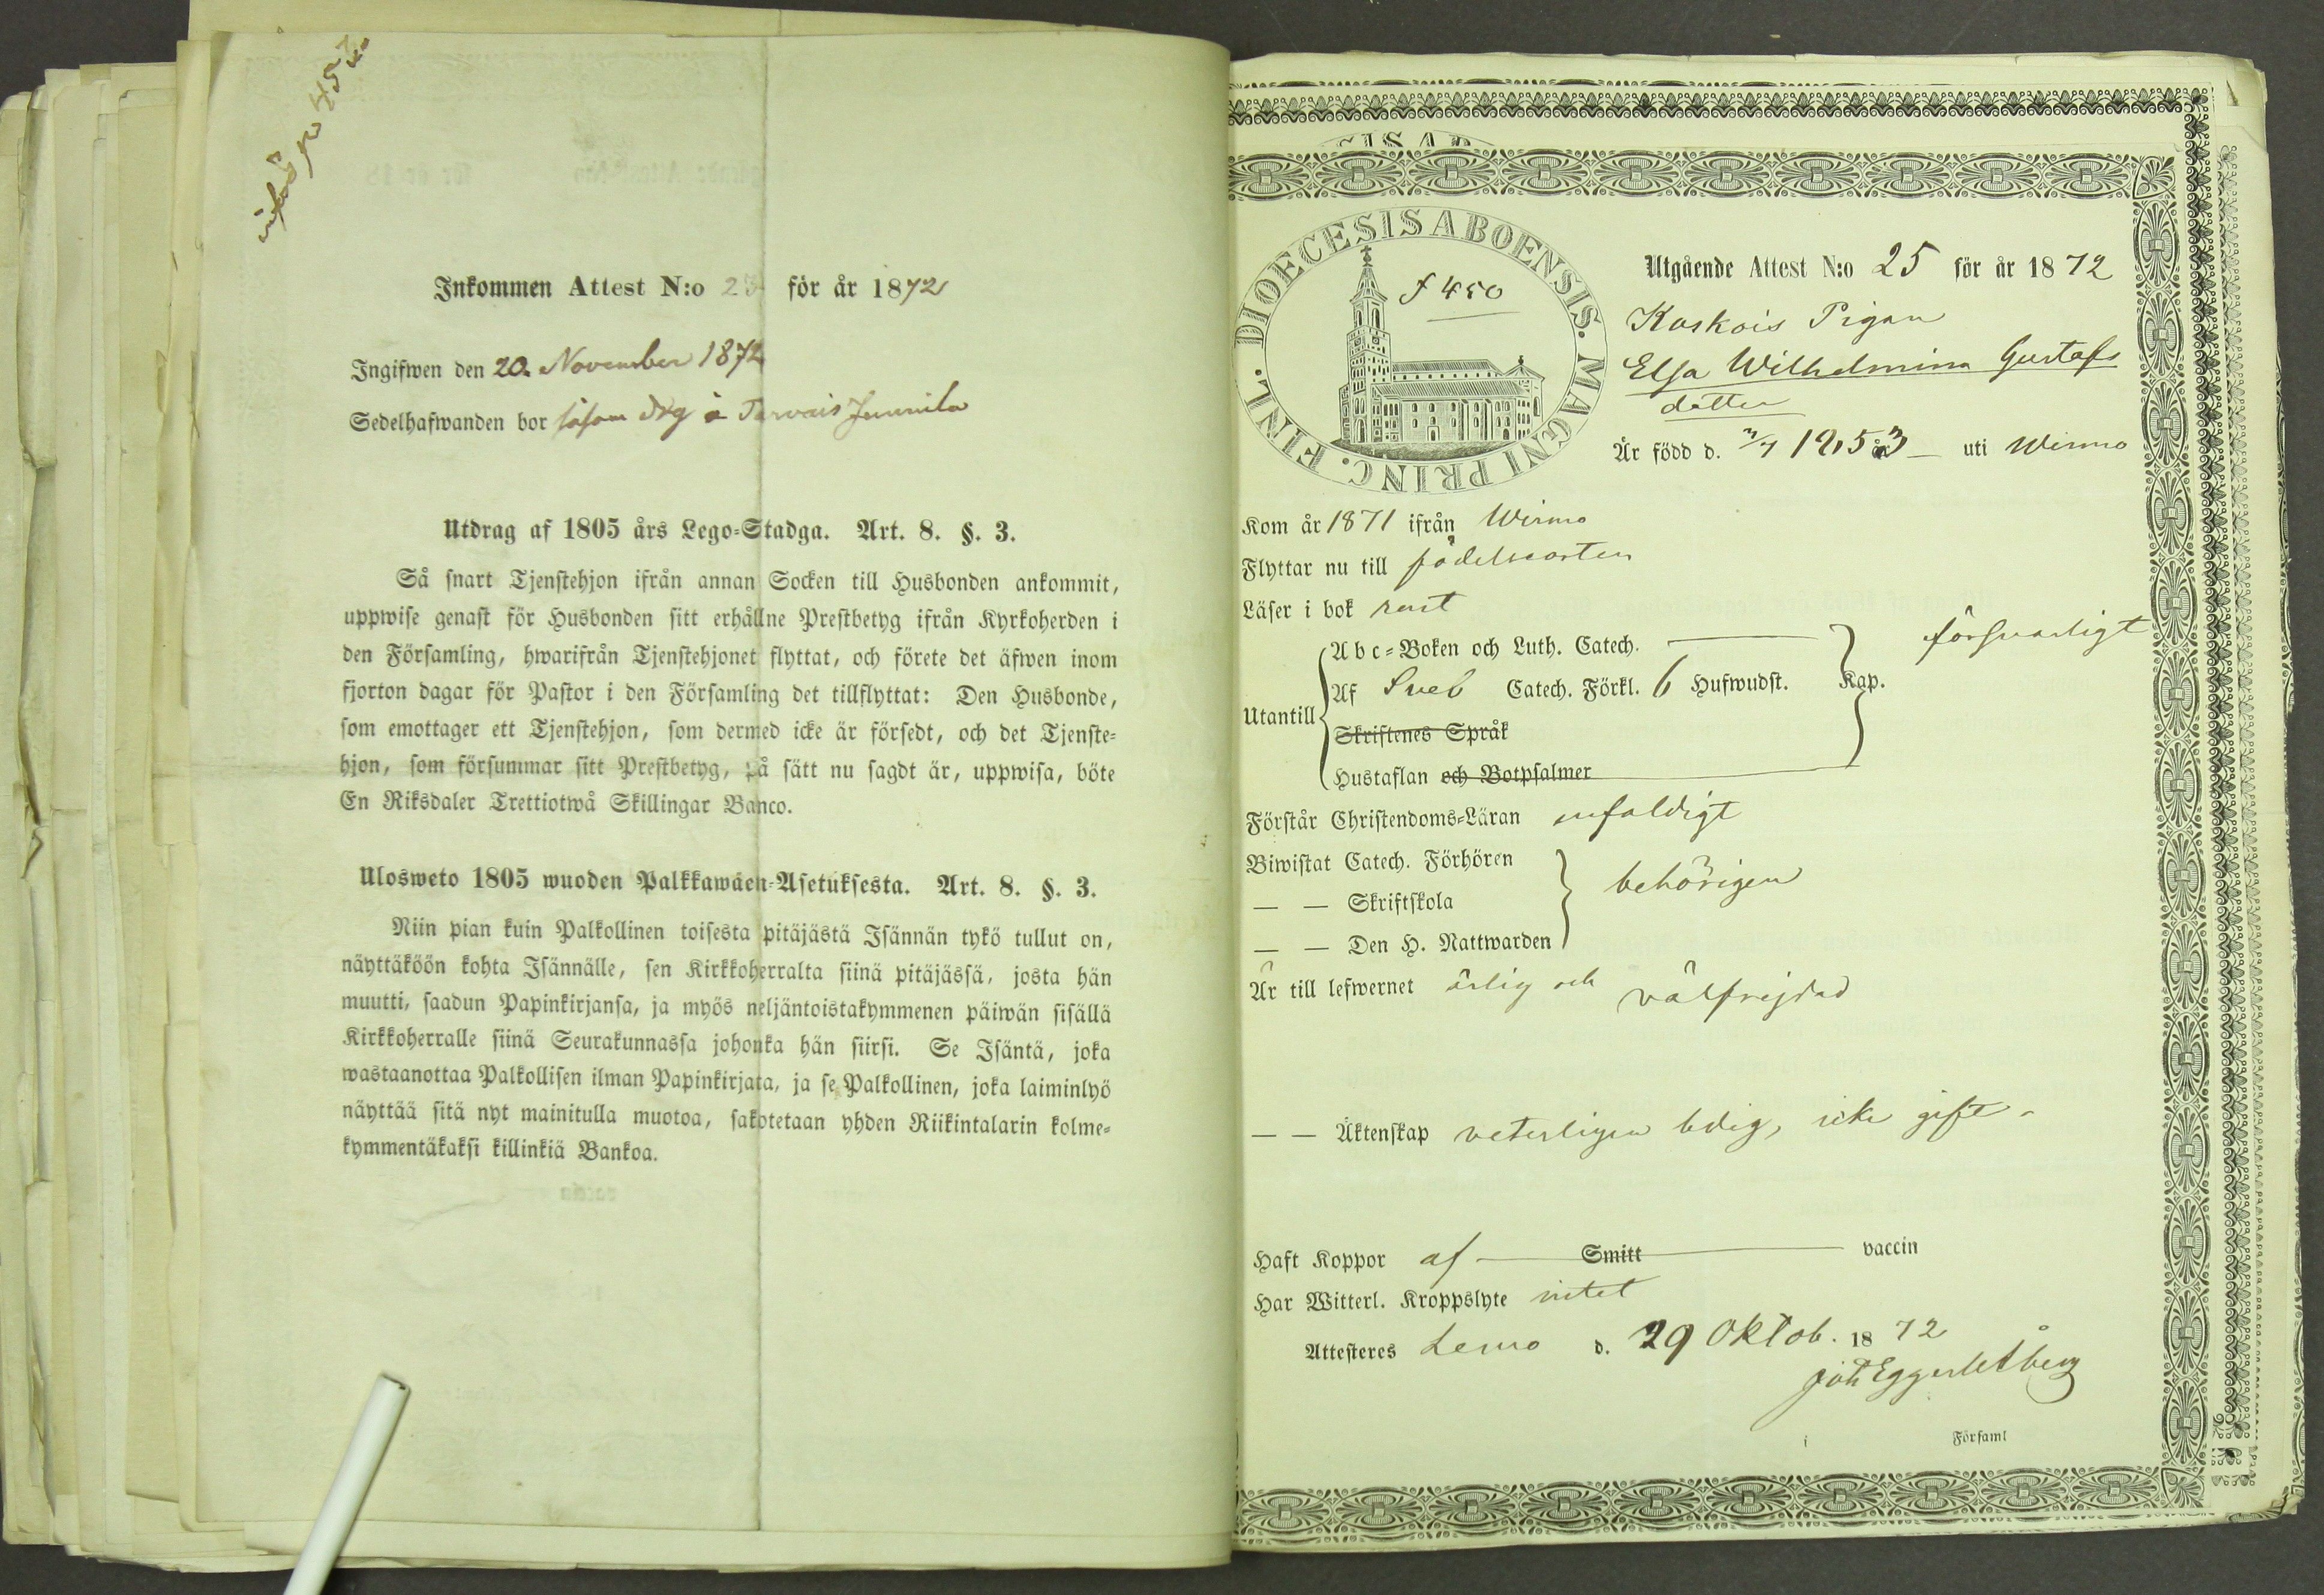 införd p 457
Inkommen Attest N:o 23 för år 1872
Ingifwen den 20 November 1872
Sedelhafwanden bor såsom drg å Tarvais Junnila
Utdrag af 1805 års Lego-Stadga. Art. 8. §. 3.
Så snart Tjenstehjon ifrån annan Socken till Husbonden ankommit,
uppwise genast för Husbonden sitt erhållne Prestbetyg ifrån Kyrkoherden i
den Församling, hwarifrån Tjenstehjonet flyttat, och förete det äfwen inom
fjorton dagar för Pastor i den Församling det tillflyttat: Den Husbonde,
som emottager ett Tjenstehjon, som dermed icke är försedt, och det Tjenste-
hjon, som försummar sitt Prestbetyg, på sätt nu sagdt är, uppwisa, böte
En Riksdaler Trettiotwå Skillingar Banco.
Ulosweto 1805 wuoden Palkkawäen-Asetuksesta. Art. 8. §. 3.
Niin pian kuin Palkollinen toisesta pitäjästä Isännän tykö tullut on,
näyttäköön kohta Isännälle, sen Kirkkoherralta siinä pitäjässä, josta hän
muutti, saadun Papinkirjansa, ja myös neljäntoistakymmenen päiwän sisällä
Kirkkoherralle siinä Seurakunnassa johonka hän siirsi. Se Isäntä, joka
wastaanottaa Palkollisen ilman Papinkirjata, ja se Palkollinen, joka laiminlyö
näyttää sitä nyt mainitulla muotoa, sakotetaan yhden Riikintalarin kolme-
kymmentäkaksi killinkiä Bankoa.
DIOECESIS ABOENSIS. MAGNI PRINC. FINL.
f 450
Utgående Attest N:o 25 för år 1872
Koskois Pigan
Elsa Wilhelmina Gustafs
dotter
Är född d. 3/7 1853 uti Wirmo
Kom år 1871 ifrån Wirmo
Flyttar nu till födelseorten
Läser i bok rent
Utantill
Abc-Boken och Luth. Catech.
Af Sveb Catech. Förkl. 6 Hufwudst. Kap. försvarligt
Skriftenes Språk
Hustaflan och Botpsalmer
Förstår Christendoms-Läran enfaldigt
Biwistat Catech. Förhören
— — Skriftskola behörigen
— — Den H. Nattwarden
Är till lefwernet ärlig och välfrejdad
— — Äktenskap veterligen ledig, icke gift
Haft Koppor af Smitt vaccin
Har Witterl. Kroppslyte intet
Attesteres Lemo d. 29 Oktob. 1872
Joh Eggerlet
i Församl